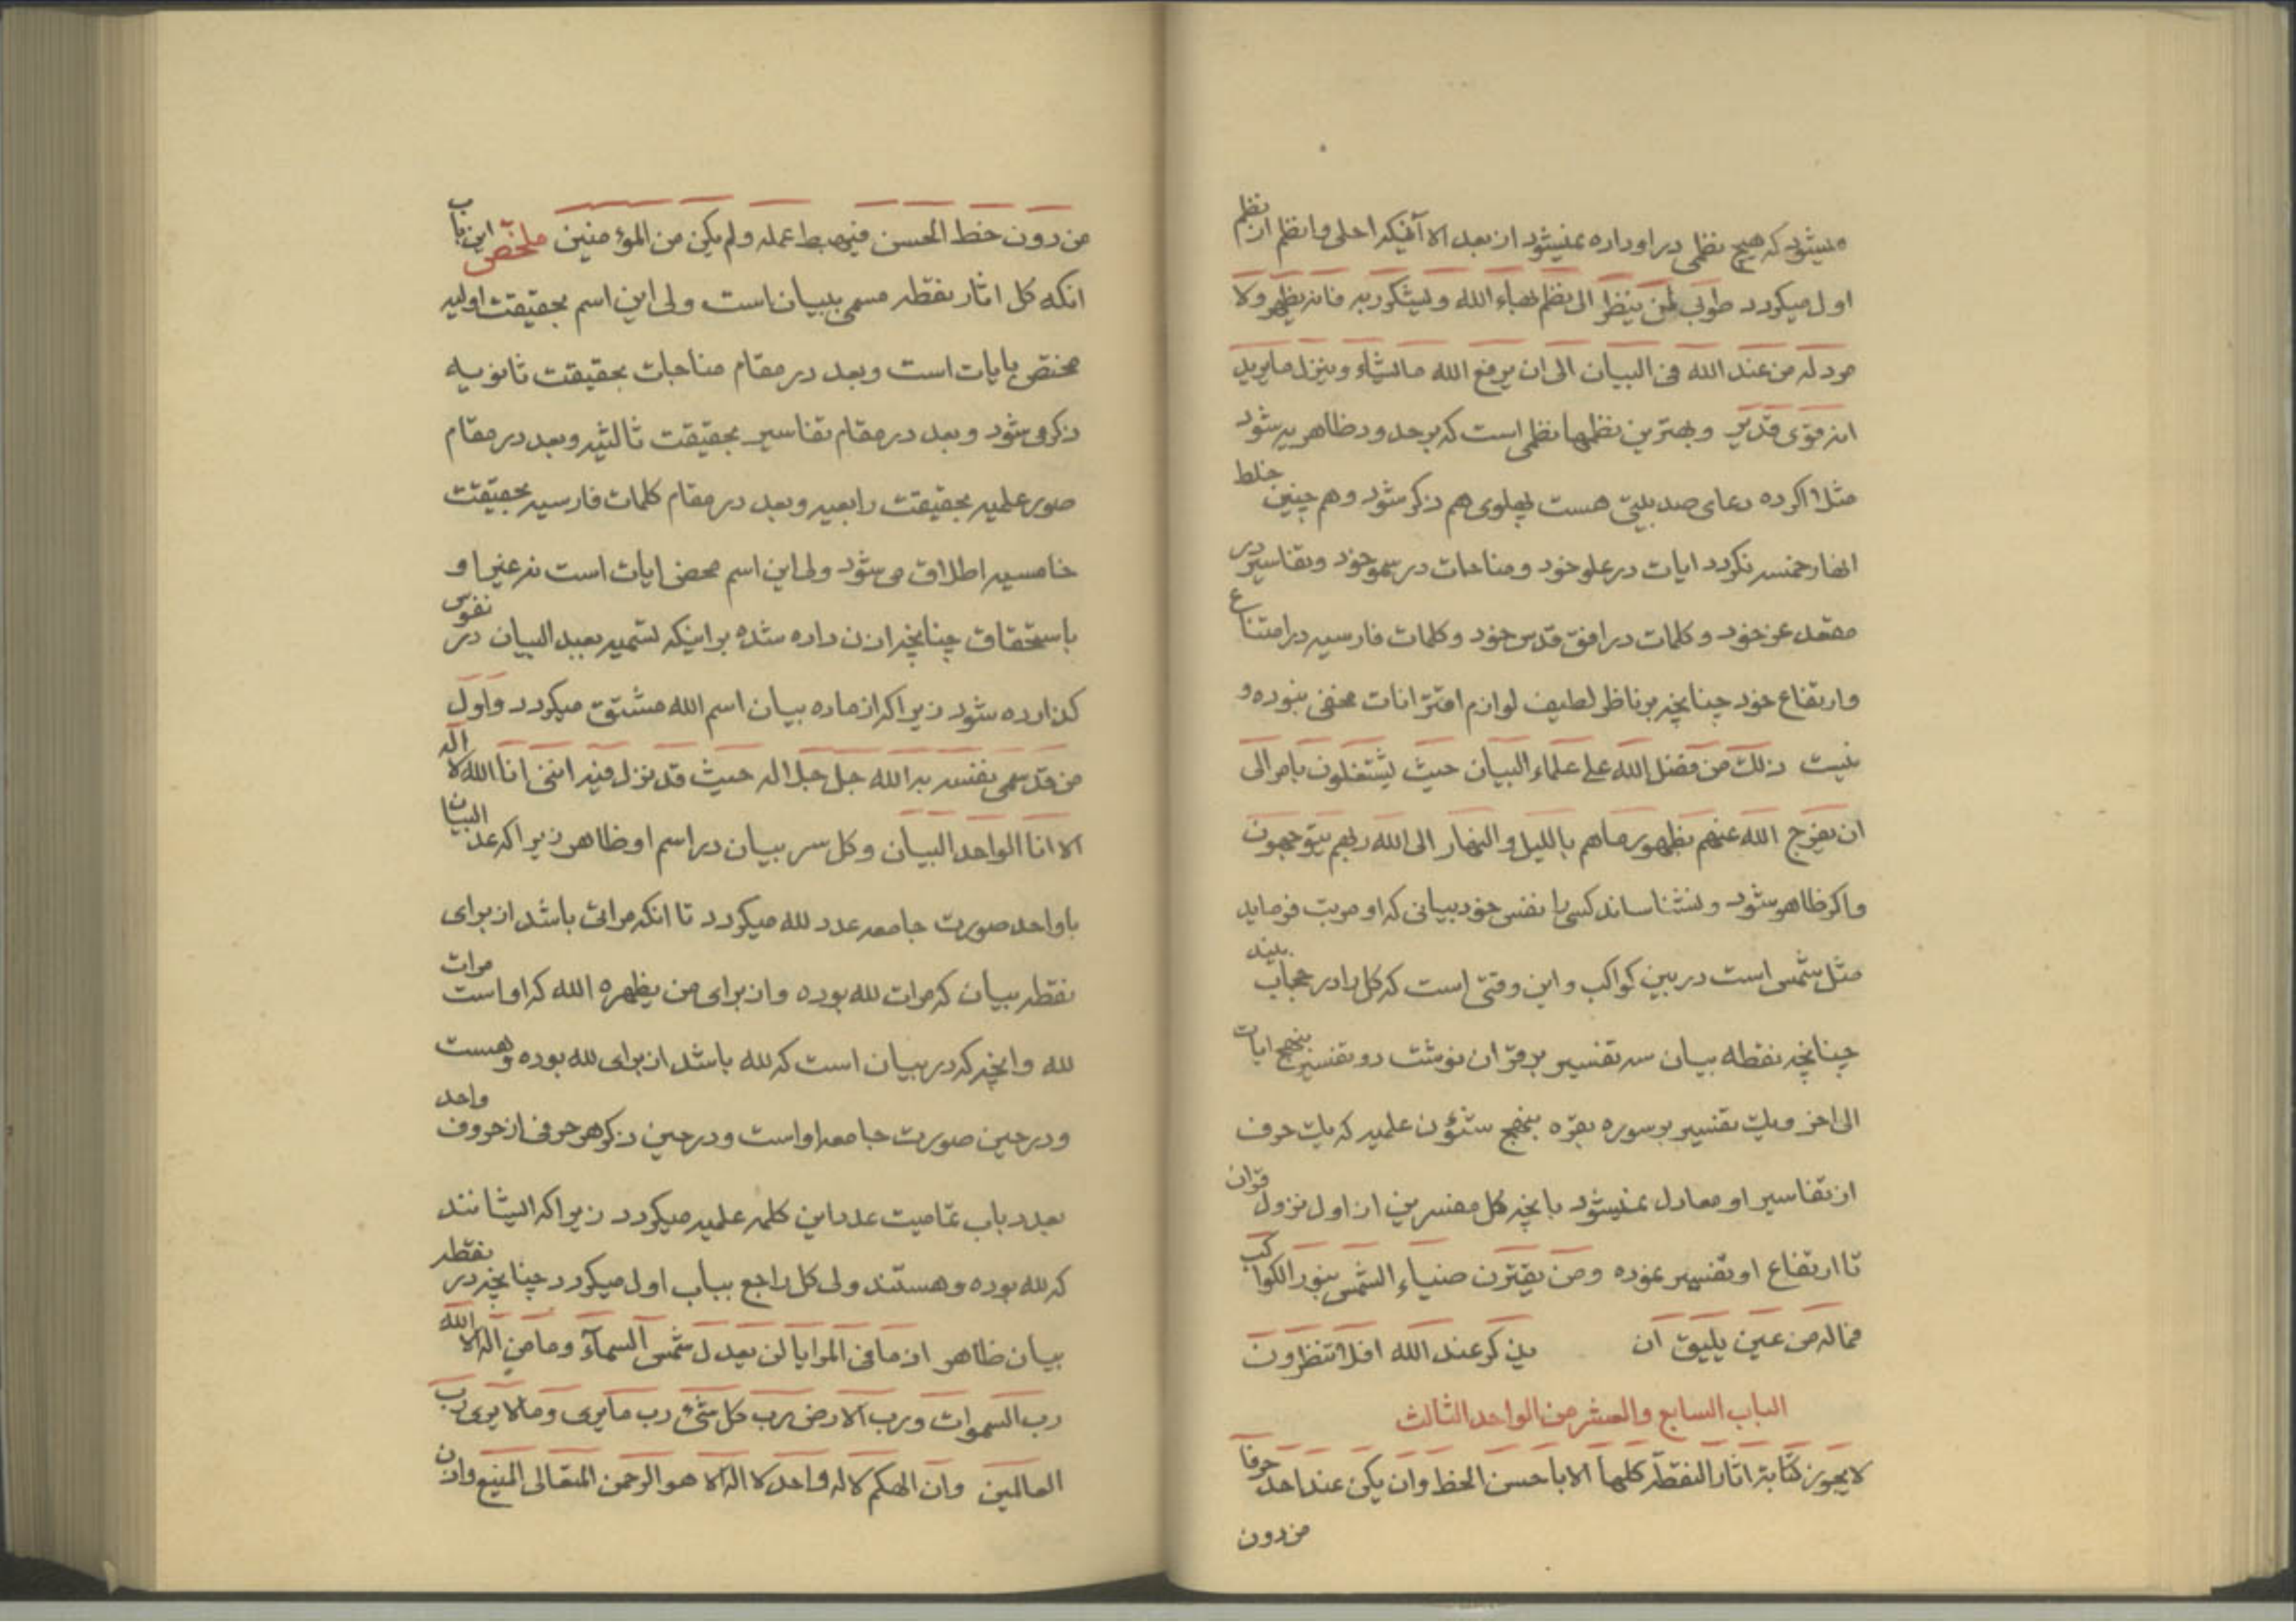 میشود که هیچ نظمی در او داده نمیشود از بعد الا آنیکه احلی وانظم از نظم
اول میگردد طوبی لمن ینظر الی نظم بهاء الله ویشکر ربه فانه یظهر ولا
مرد له من عند الله فی البیان الی ان یرفع الله مایشاء وینزل مایرید
انه قوی قدیر وبهترین نظمها نظمی است که بر حدود ظاهریه شود
مثلا اگر ده دعای صد بیتی هست پهلوی هم ذکر شود وهم چنین خلط
انهار خمسه نگردد ایات در علو خود ومناجات در سمو خود وتفاسیر در
مقعد عز خود وکلمات در افق قدس خود وکلمات فارسیه در امتناع
وارتفاع خود چنانچه بر ناظر لطیف لوازم اقترانات مخفی نبوده و
نیست ذلک من فضل الله علی علماء البیان حیث یشتغلون بامر الی
ان یفرج الله عنهم بظهور ماهم باللیل والنهار الی الله ربهم یتوجهون
واگر ظاهر شود ونشناساند کسی را نفس خود بیانی که او مرتب فرماید
مثل شمس است در بین کواکب واین وقتی است که کل را در حجاب بیند
چنانچه نقطه بیان سه تفسیر بر قران نوشت دو تفسیر بنهج ایات
الی اخر ویک تفسیر بر سوره بقره بنهج شئون علمیه که یک حرف
از تفاسیر او معادل نمیشود بانچه کل مفسرین از اول نزول قران
تا ارتفاع او تفسیر نموده ومن یقترن ضیاء الشمس بنور الکواکب
فماله من عین یلیق ان یذکر عند الله افلا تنظرون
الباب السابع والعشر من الواحد الثالث
لایجوز کتابة اثار النقطة کلها الا باحسن الخط وان یکن عند احد حرفا
من دون
من دون خط الحسن فیحبط عمله ولم یکن من المؤمنین ملخص این باب
انکه کل اثار نقطه مسمی ببیان است ولی این اسم بحقیقت اولیه
مختص بایات است وبعد در مقام مناجات بحقیقت ثانویه
ذکر می شود وبعد در مقام تفاسیر بحقیقت ثالثیه وبعد در مقام
صور علمیه بحقیقت رابعیه وبعد در مقام کلمات فارسیه بحقیقت
خامسیه اطلاق می شود ولی این اسم محض ایات است نه غیر او
باستحقاق چنانچه اذن داده شده بر اینکه تسمیه بعبد البیان در نفوس
گذارده شود زیرا که از ماده بیان اسم الله مشتق میگردد واول
من قد سمی بنفسه به الله جل جلاله حیث قد نزل فیه اننی انا الله لا اله
الا انا الواحد البیان وکل سر بیان در اسم او ظاهر زیرا که عد البیان
با واحد صورت جامعه عدد لله میگردد تا انکه مراتی باشد از برای
نقطه بیان که مرات لله بوده واز برای من یظهره الله که او است مرات
لله وانچه که در بیان است که لله باشد از برای لله بوده وهست
ودر حین صورت جامعه او است ودر حین ذکر هر حرفی از حروف واحد
بعدد باب تمامیت عدد این کلمه علمیه میگردد زیرا که ایشانند
که لله بوده وهستند ولی کل راجع بباب اول میگردد چنانچه در نقطه
بیان ظاهر از مافی المرایا لن یعدل شمس السمآء وما من اله الا الله
رب السموات ورب الارض رب کل شئ رب مایری ومالایری رب
العالمین وان الهکم لاله واحد لا اله الا هو الرحمن المتعالی المنیع وان